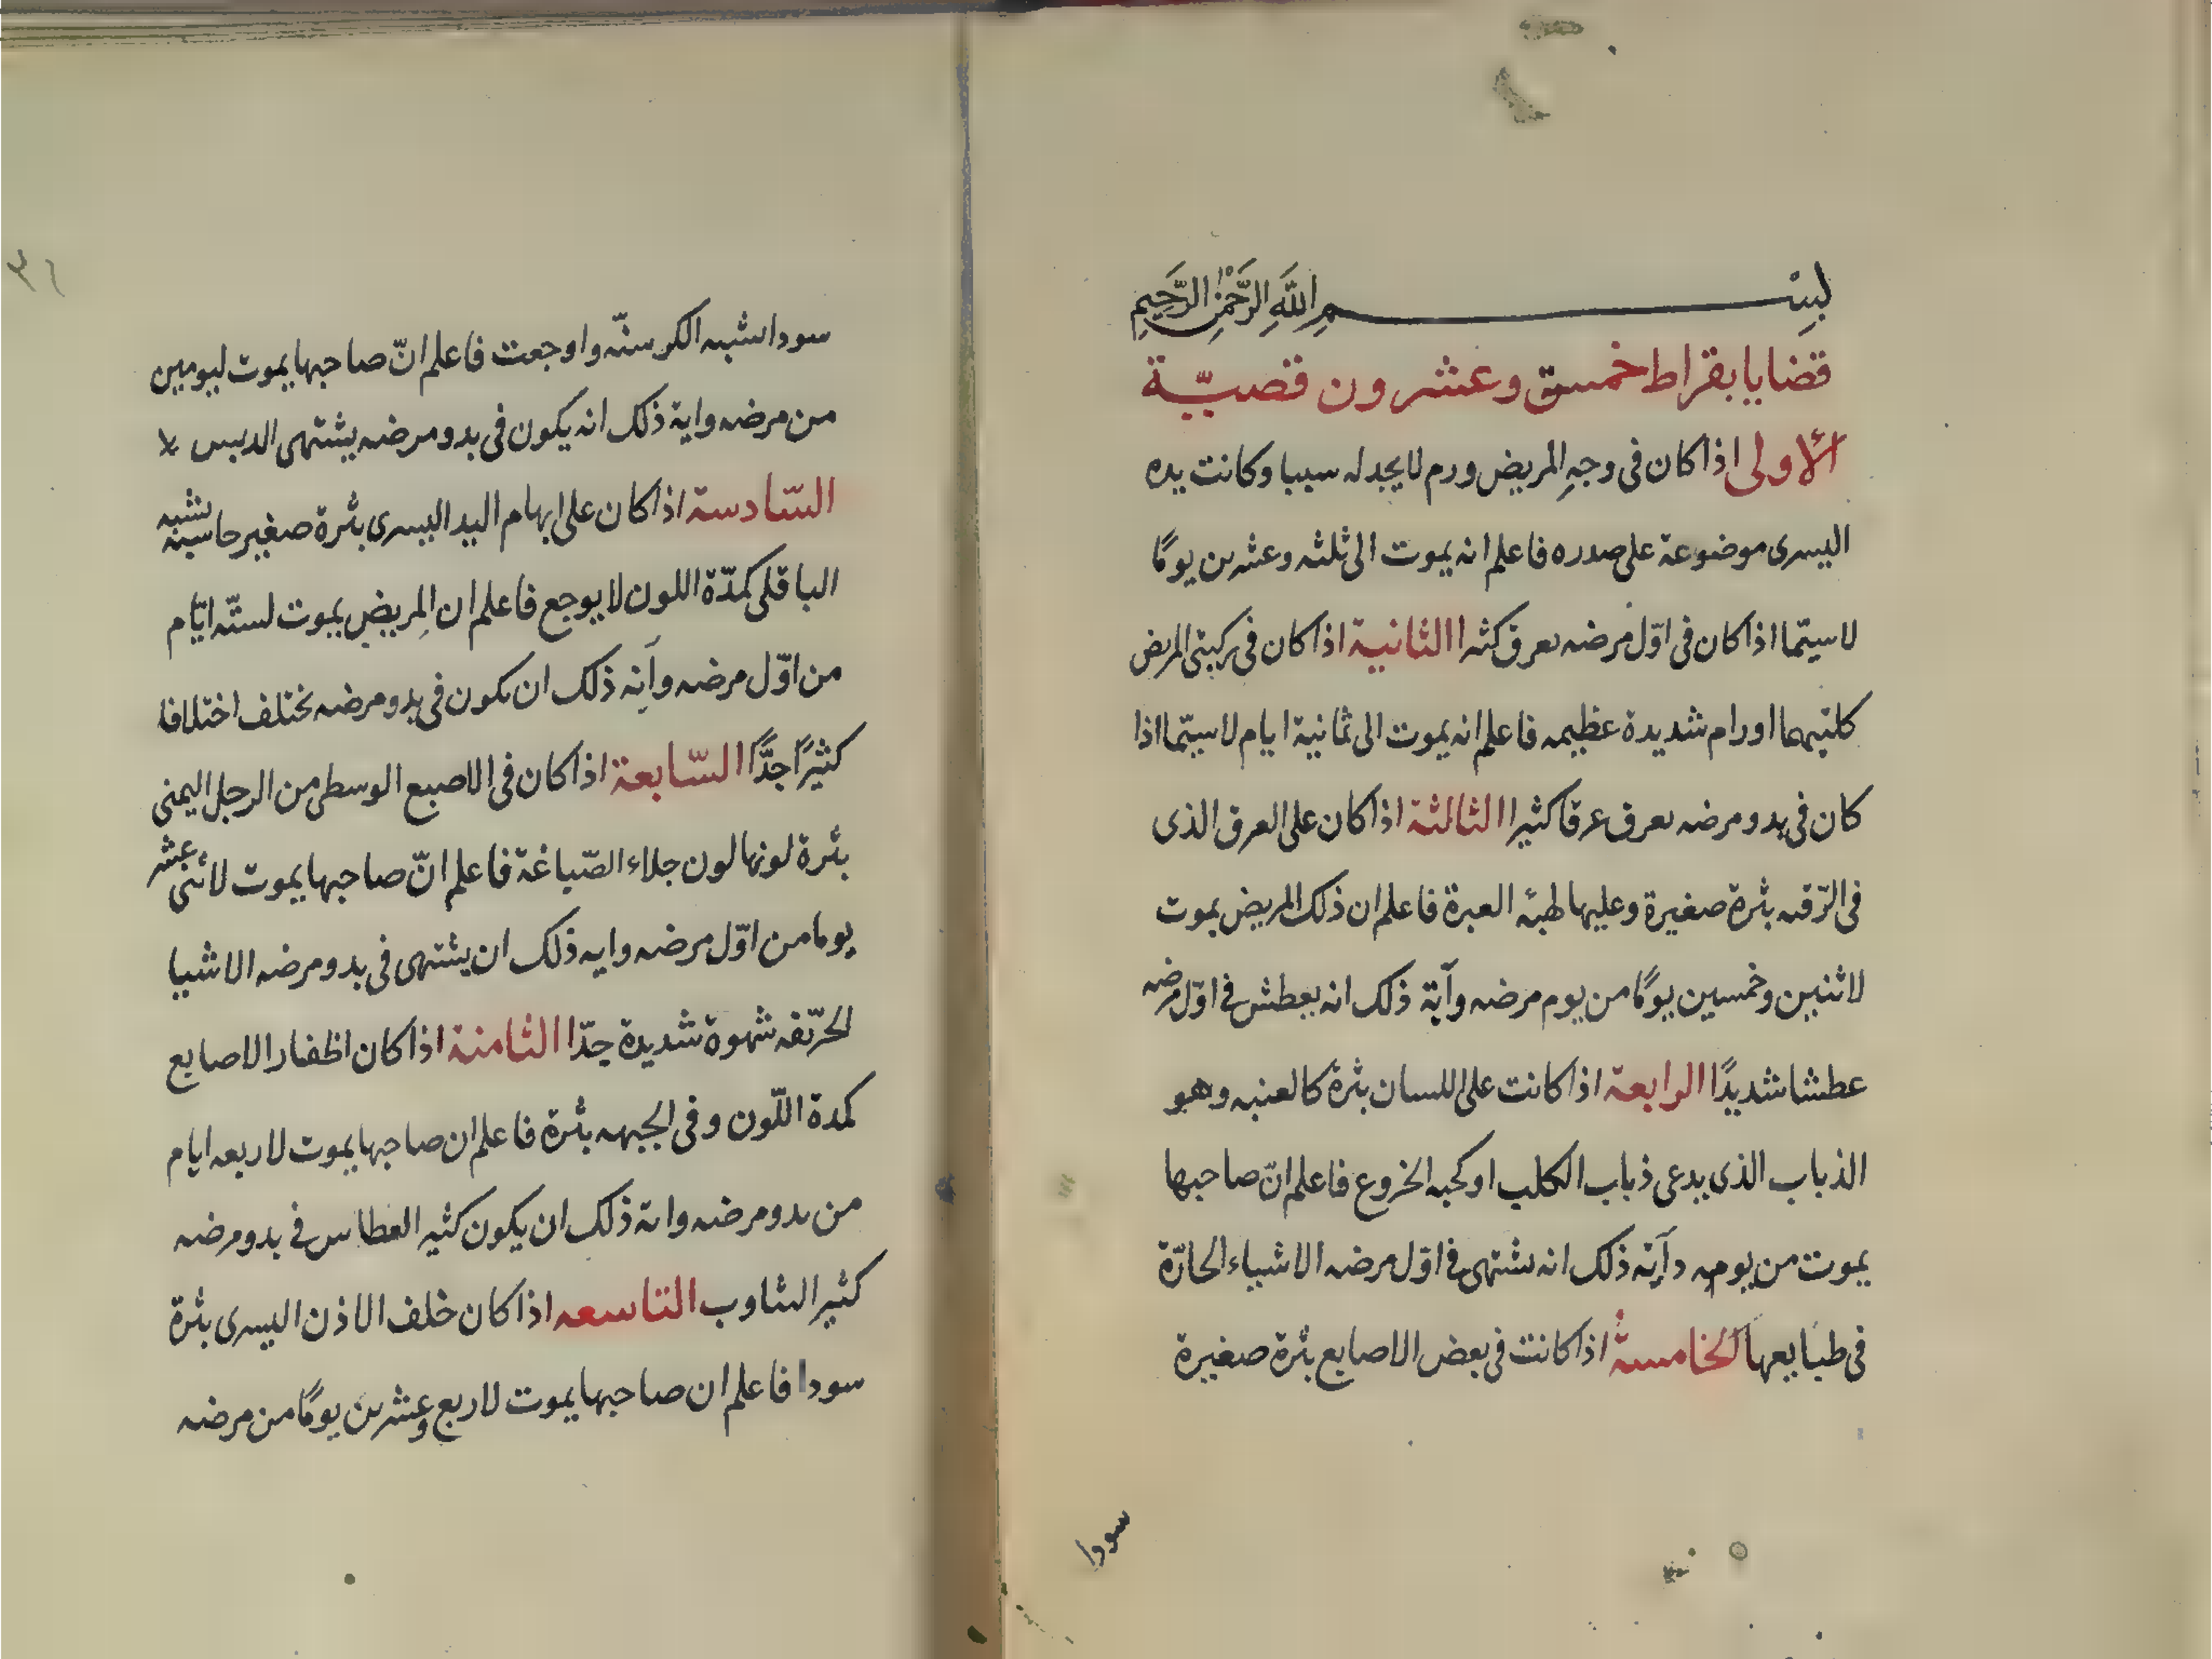 بِسْمِ اللَّهِ الرَّحْمٰنِ الرَّحِيمِ
قضايا بقراط خمسة وعشرون قضيّة
الأولى اذا كان فى وجهِ المريض ورم لا يجد له سببا وكانت يده
اليسرى موضوعة على صدره فاعلم انه يموت الى ثلثه وعشرين يومًا
لاسيّما اذا كان فى اوّل مرضه يعرق كثيرا الثانية اذا كان فى ركبتى المريض
كلتيهما اورام شديدة عظيمه فاعلم انه يموت الى ثمانية ايام لاسيّما اذا
كان فى بدو مرضه يعرق عرقا كثيرا الثالثة اذا كان على العرق الذى
فى الرّقبه بثرة صغيرة وعليها العبرة فاعلم ان ذلك المريض يموت
لاثنين وخمسين يومًا من يوم مرضه وآية ذلك انه يعطش فى اوّل مرضه
عطشا شديدًا الرابعة اذا كانت على اللسان بثرة كالعنبه وهو
الذباب الذى يدعى ذباب الكلب او كحبه الخروع فاعلم انّ صاحبها
يموت من يومه وآية ذلك انه يشتهى فى اوّل مرضه الاشياء الحارّة
فى طبايعها الخامسة اذا كانت فى بعض الاصابع بثرة صغيرة
سودا
٣٢
سودا شبه الكرسنّه واوجعت فاعلم انّ صاحبها يموت ليومين
من مرضه واية ذلك انه يكون فى بدو مرضه يشتهى الدبس
السّادسة اذا كان على ابهام اليد اليسرى بثرة صغير حاسيه تشبه
الباقلى كمدّة اللون لا يوجع فاعلم ان المريض يموت لستّه ايّام
من اوّل مرضه وآية ذلك ان يكون فى بدو مرضه يختلف اختلافا
كثيرًا جدًّا السّابعة اذا كان فى الاصبع الوسطى من الرجل اليمنى
بثرة لونها لون جلاء الصّباغة فاعلم انّ صاحبها يموت لاثنى عشر
يوما من اوّل مرضه وايه ذلك ان يشتهى فى بدو مرضه الاشيا
الحرّيفه شهوة شديدة جدّا الثامنة اذا كان اظفار الاصابع
كمدة اللّون وفى الجبهه بثرة فاعلم ان صاحبها يموت لاربعه ايام
من بدو مرضه واية ذلك ان يكون كثير العطاس فى بدو مرضه
كثير التثاوب التاسعه اذا كان خلف الاذن اليسرى بثرة
سودا فاعلم ان صاحبها يموت لاربع وعشرين يومًا من مرضه